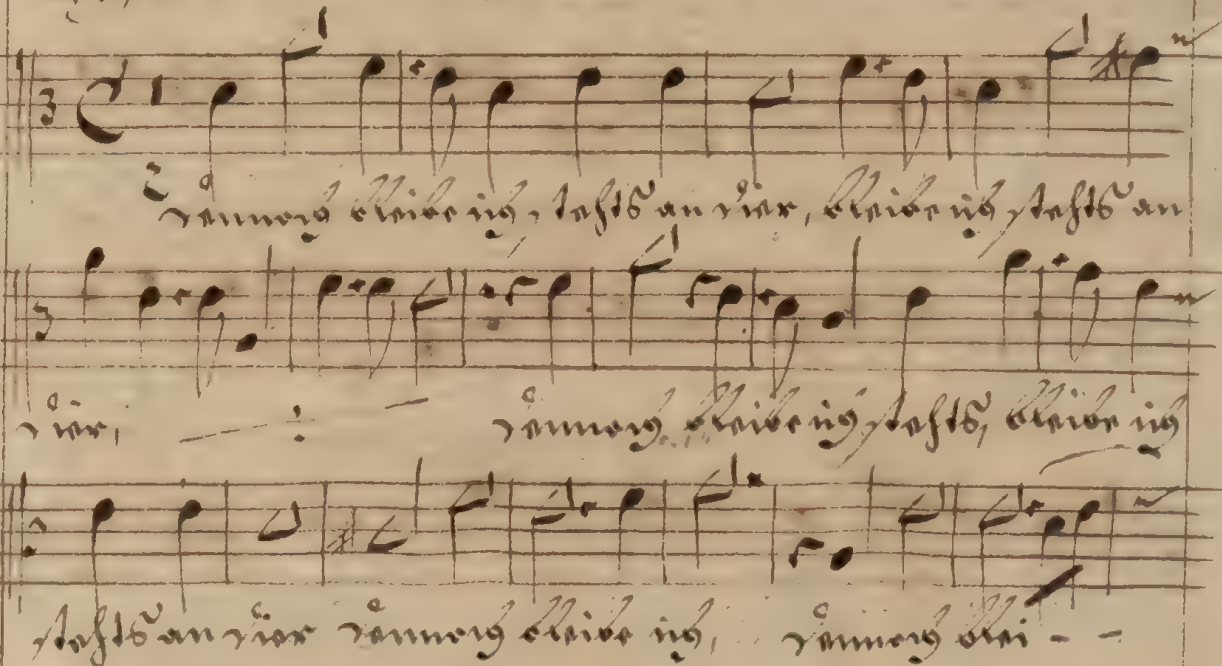 Dennoch bleibe ich stehts an dier, bleibe ich stehts an
dier, Dennoch bleibe ich stehts, bleibe ich
stehts an dier Dennoch bleibe ich, Dennoch blei - -